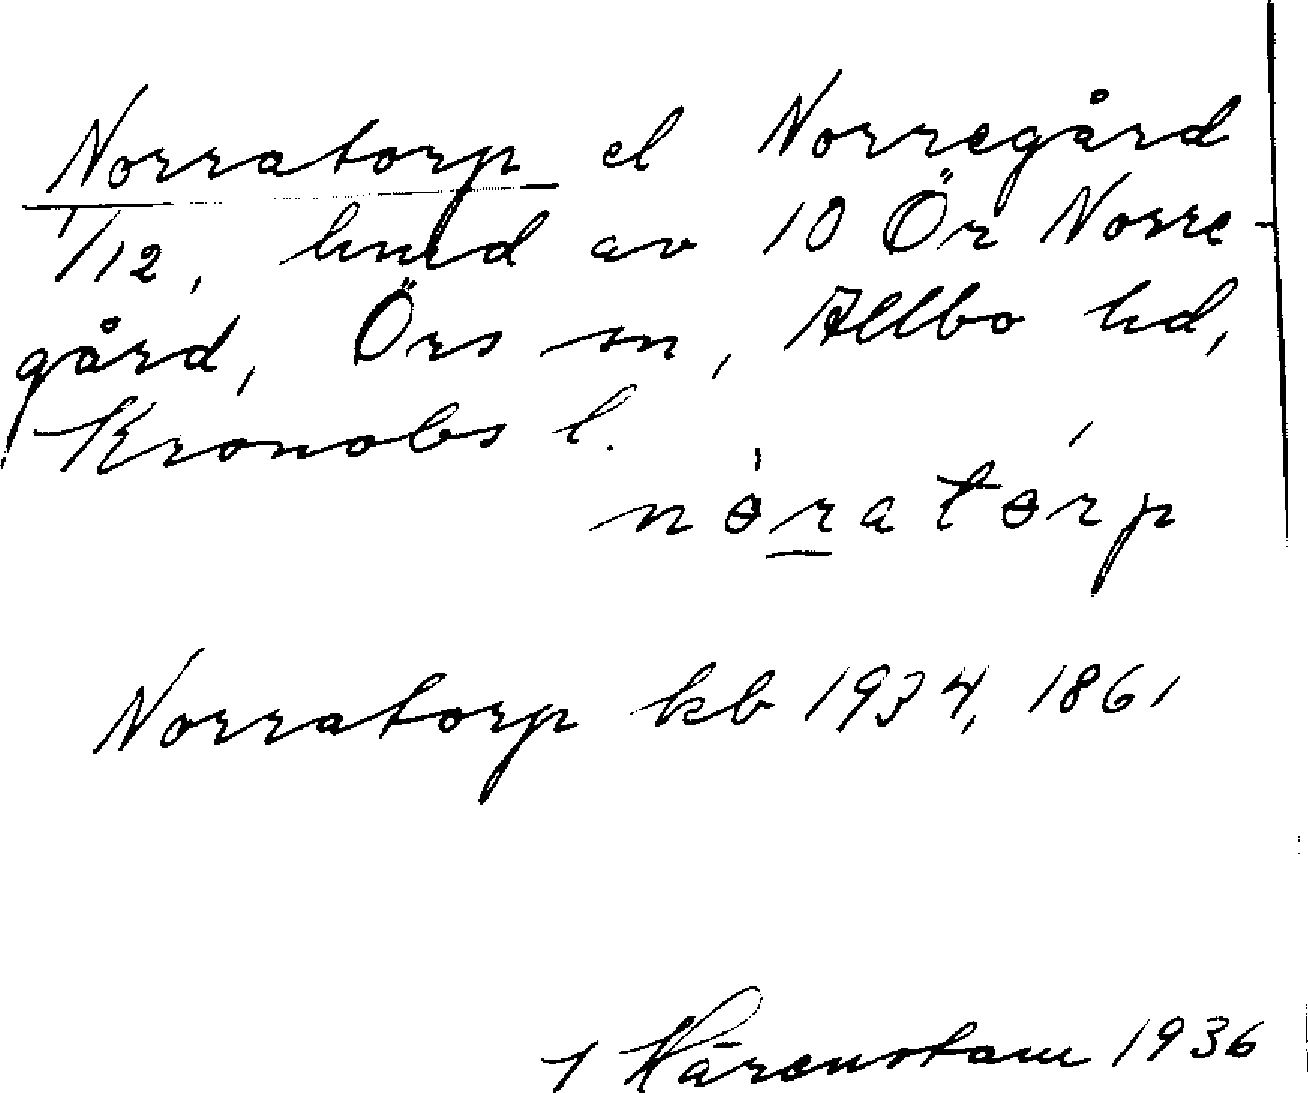 Norratorp el Norregård
1/12, hmd av 10 Ör Norre-
gård, Örs sn, Allbo hd,
Kronobs l.
nɵ̀ratɵ́rp
Norratorp kb 1934, 1861
Härenstam 1936